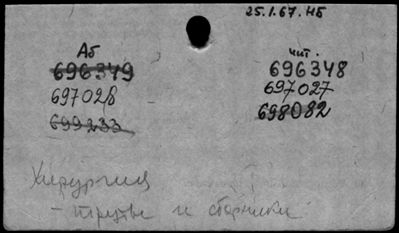 25.1.67. НБ
Аб чит.
696349 696348
697028 697027
699233 698082
Хирургия
- труды и сборники